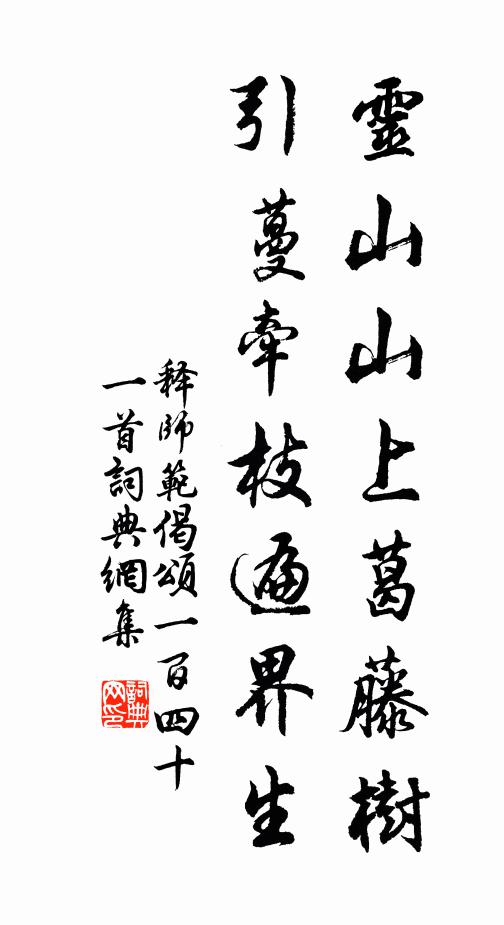 靈山山上葛藤樹
引蔓牽枝遍界生
释師範偈頌一百四十
一首詞典網集
詞典网印